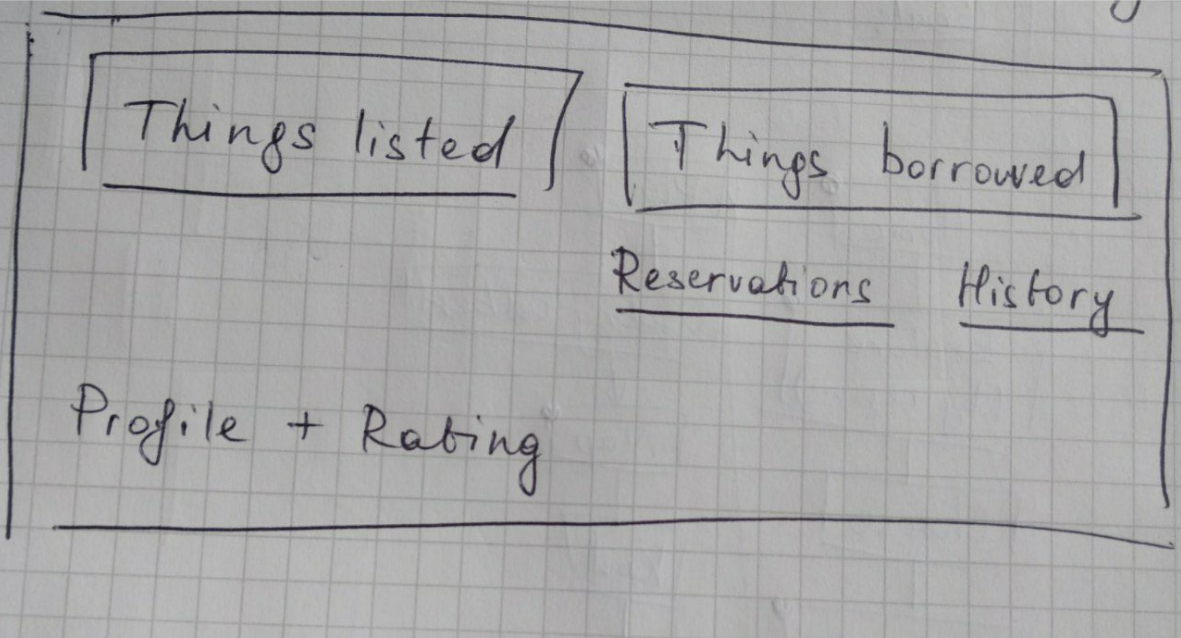 Things listed
Things borrowed
Reservations History
Profile + Rating